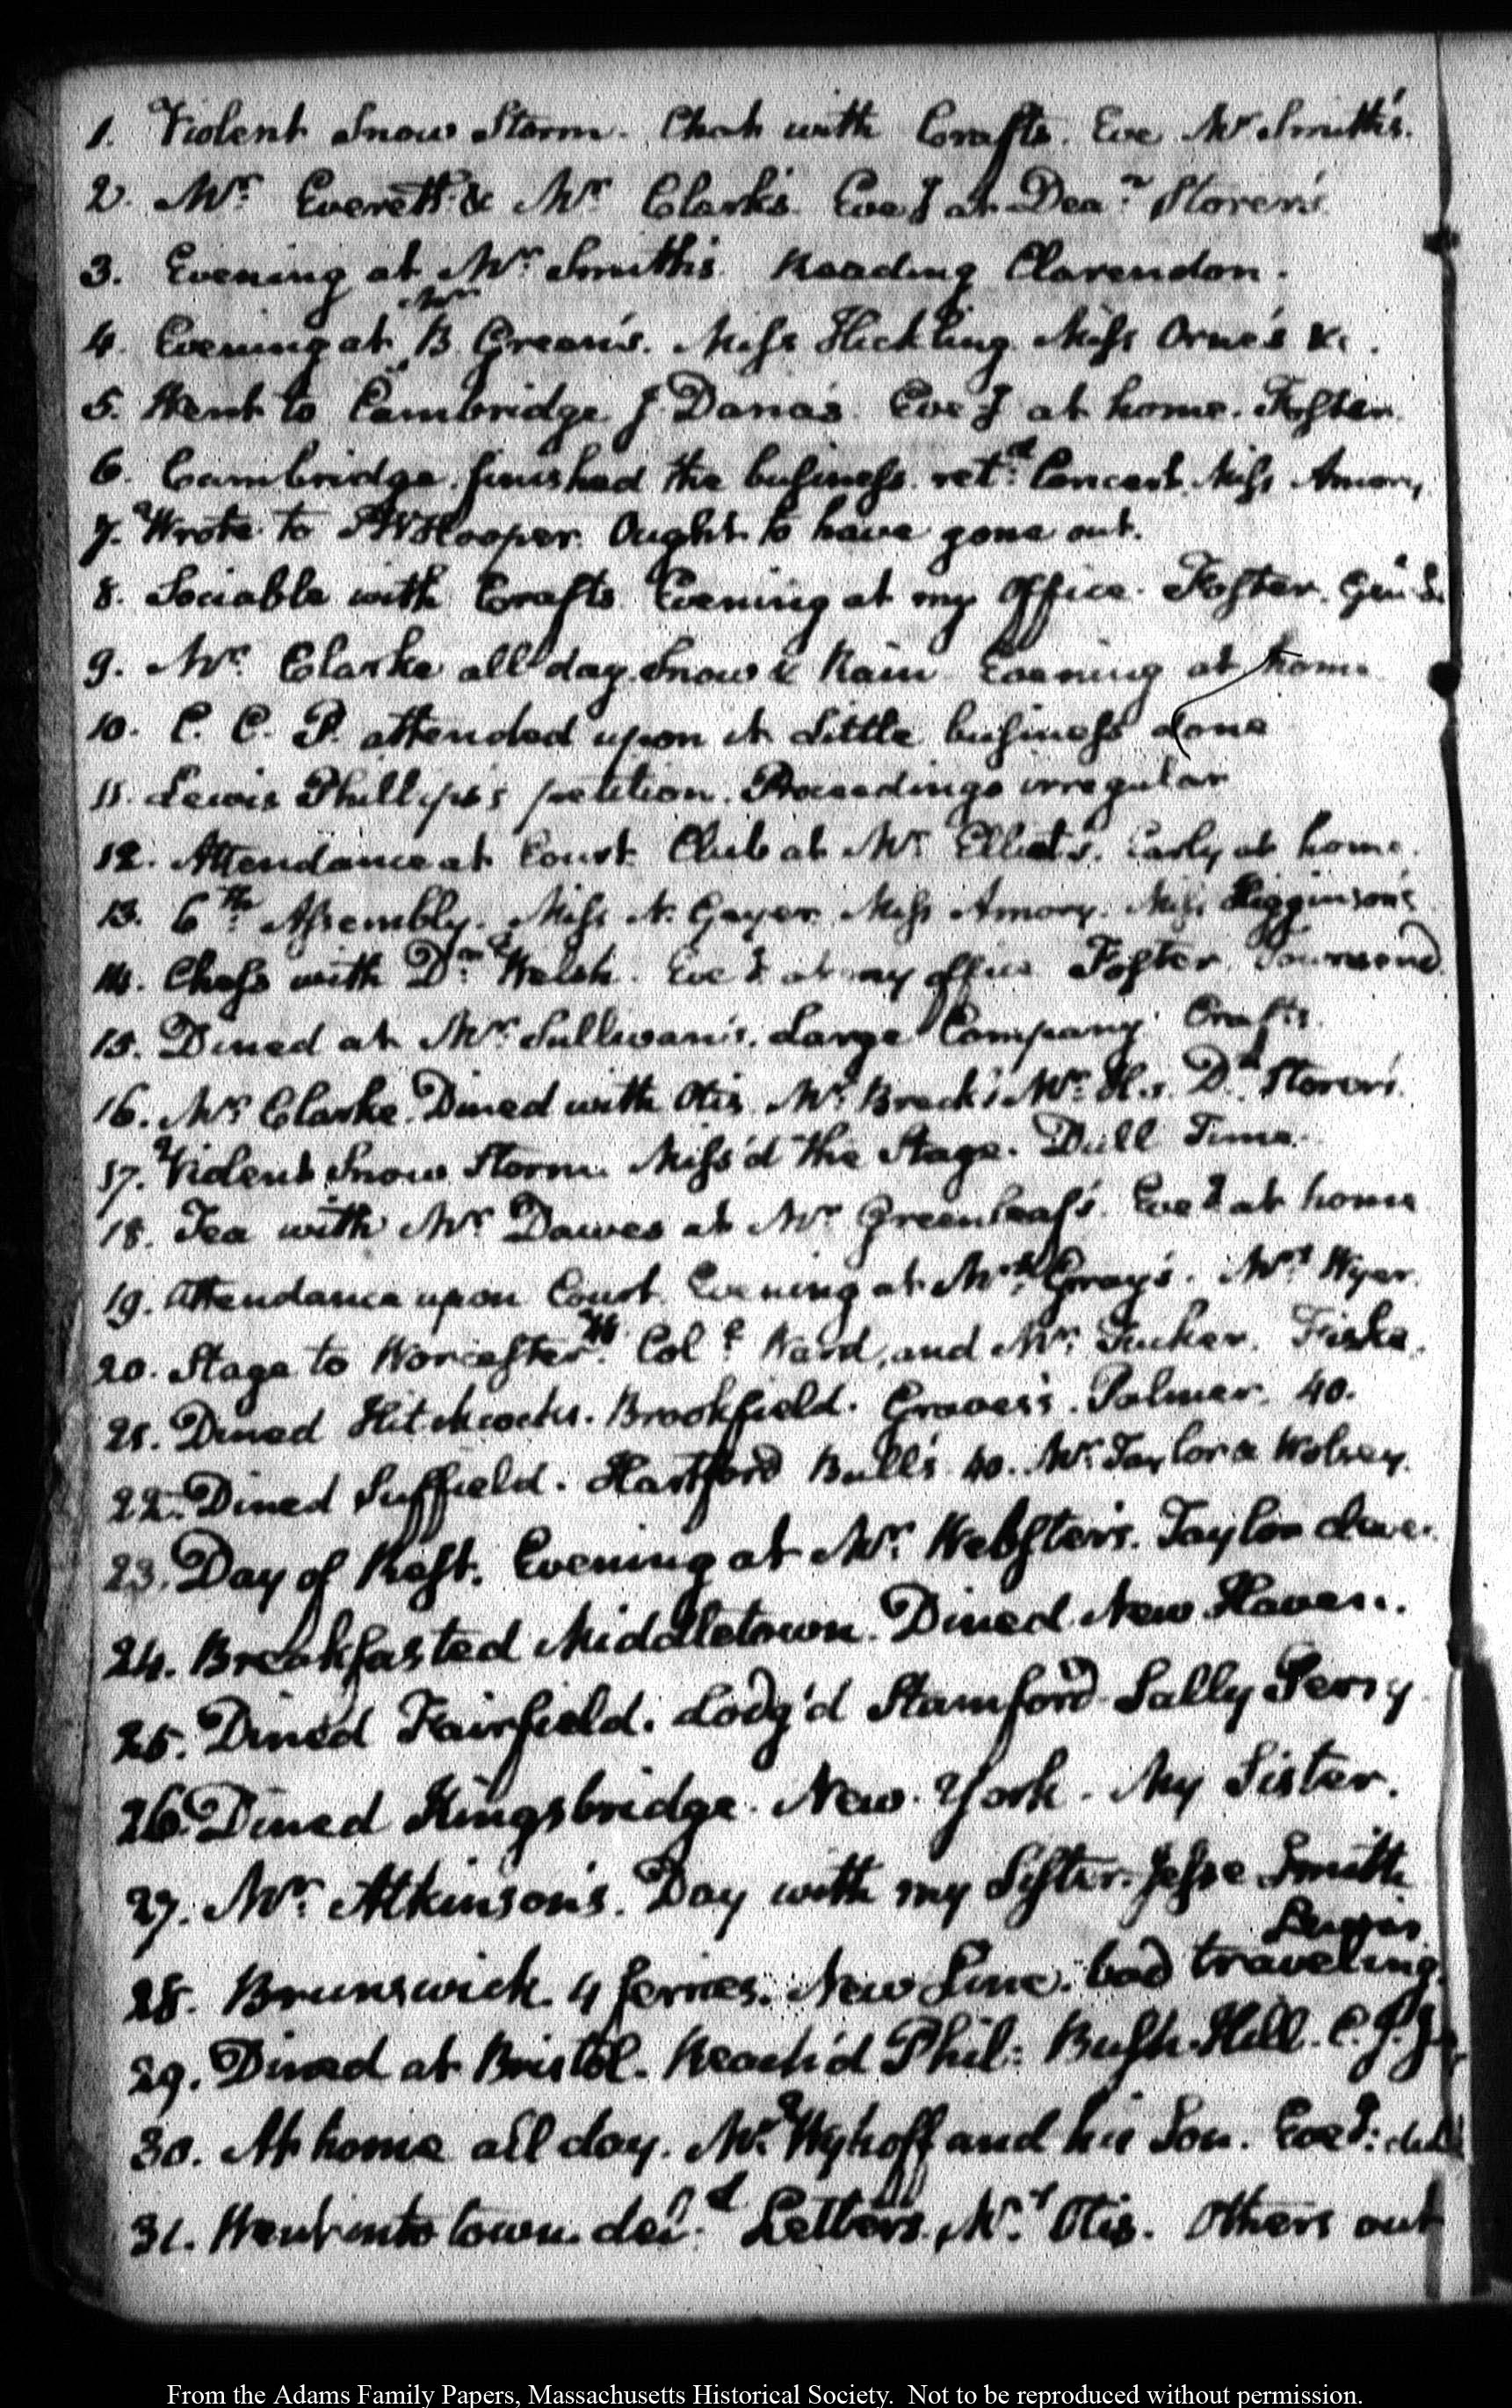 1. Violent Snow Storm. Chat with Crafts. Eve Mr Smith's.
2. Mr Everett & Mr Clarke's. Eveg at Dean Storer's
3. Evening at Mr Smith's. Reading Clarendon.
Mr
4. Evening at B. Green's. Miss Hickling. Miss Orne's &c.
5. Went to Cambridge. J. Dana's. Eveg at home. Foster.
6. Cambridge. finished the business. retd. Concert. Miss Amory
7. Wrote to Hooper. Ought to have gone out.
8. Sociable with Crafts. Evening at my Office. Foster.
9. Mr. Clarke all day. Snow & Rain. Evening at home
10. C. C. P. attended upon it. Little business done
11. Lewis Phillips's petition. Proceedings irregular
12. Attendance at Court. Club at Mr. Elliot's. Early at home.
13. 6th Assembly. Miss N. Gayer. Miss Amory. Miss Higginson's
14. Chess with Dr. Welsh. Eveg at my office. Foster. Townsend
15. Dined at Mr. Sullivan's. Large Company. Crafts.
16. Mr. Clarke. Dined with Otis. Mr. Breck's Mr. H.s. Dn. Storer's.
17. Violent Snow Storm. Miss'd the Stage. Dull Time.
18. Tea with Mr Dawes at Mr Greenleaf's. Eveg at home
19. Attendance upon Court. Evening at Mrs. Gray's. Mrs Wyer.
20. Stage to Worcester. Col. Ward, and Mr. Tucker. Fiske.
21. Dined Hitchcocks. Brookfield. Graves's. Palmer. 40.
22. Dined Suffield. Hartford Bull's 40. Mr. Taylor & Wolsey.
23. Day of Rest. Evening at Mr. Webster's. Taylor
24. Breakfasted Middletown. Dined New Haven.
25. Dined Fairfield. Lodg'd Stamford. Sally Perry
26. Dined Kingsbridge. New York. My Sister.
27. Mr. Atkinson's. Day with my Sister. Jesse Smith
28. Brunswick. 4 ferries. New Line. bad traveling.
29. Dined at Bristol. Reach'd Phil: Bush-Hill.
30. At home all day. Mr. Wykoff and his Son. Eveg: dull
31. Went into town. deld. Letters. Mr. Otis. Others out
From the Adams Family Papers, Massachusetts Historical Society. Not to be reproduced without permission.